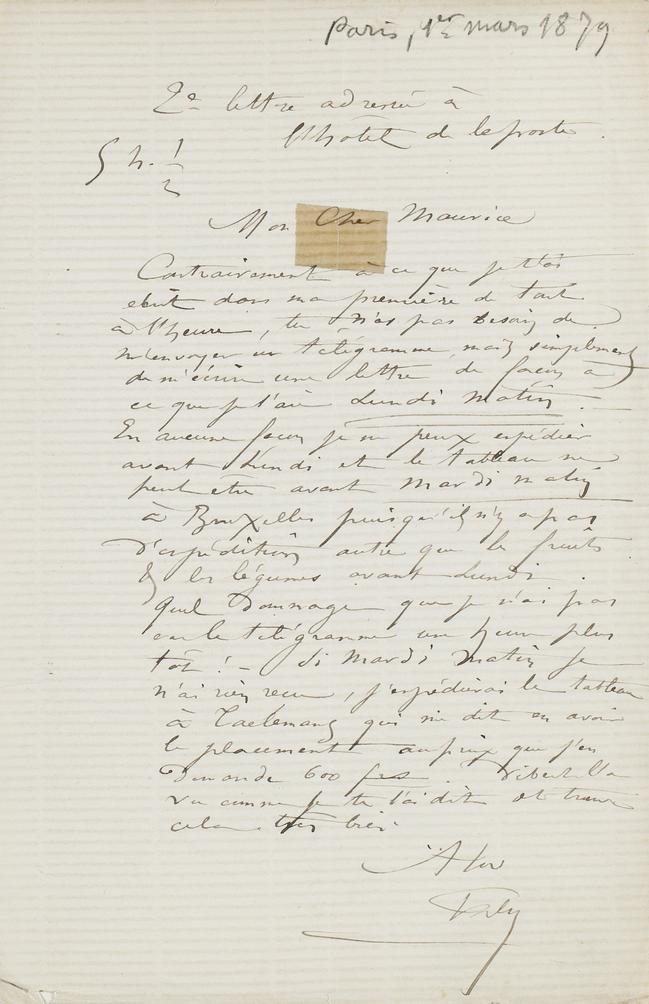 Paris, 1er mars 1879
2e lettre adressée à
l'hôtel de la poste.
5 h. 1/2
Mon Cher Maurice
Contrairement à ce que je t'ai
écrit dans ma première de tout
à l'heure, tu n'as pas besoin de
m'envoyer un télégramme, mais simplement
de m'écrire une lettre de façon à
ce que je l'aie Lundi matin.
En aucune façon je ne peux expédier
avant Lundi et le tableau ne
peut être avant mardi matin
à Bruxelles puisqu'il n'y a pas
d'expédition autre que les fruits
& les légumes avant Lundi.
Quel dommage que je n'ai pas
eu le télégramme une heure plus
tôt ! – Si Mardi matin je
n'ai rien reçu, j'expédierai le tableau
à Taelemans qui me dit en avoir
le placement au prix que j'en
demande 600 frs. Vibert l'a
vu comme je te l'ai dit et trouve
cela très bien.
A toi